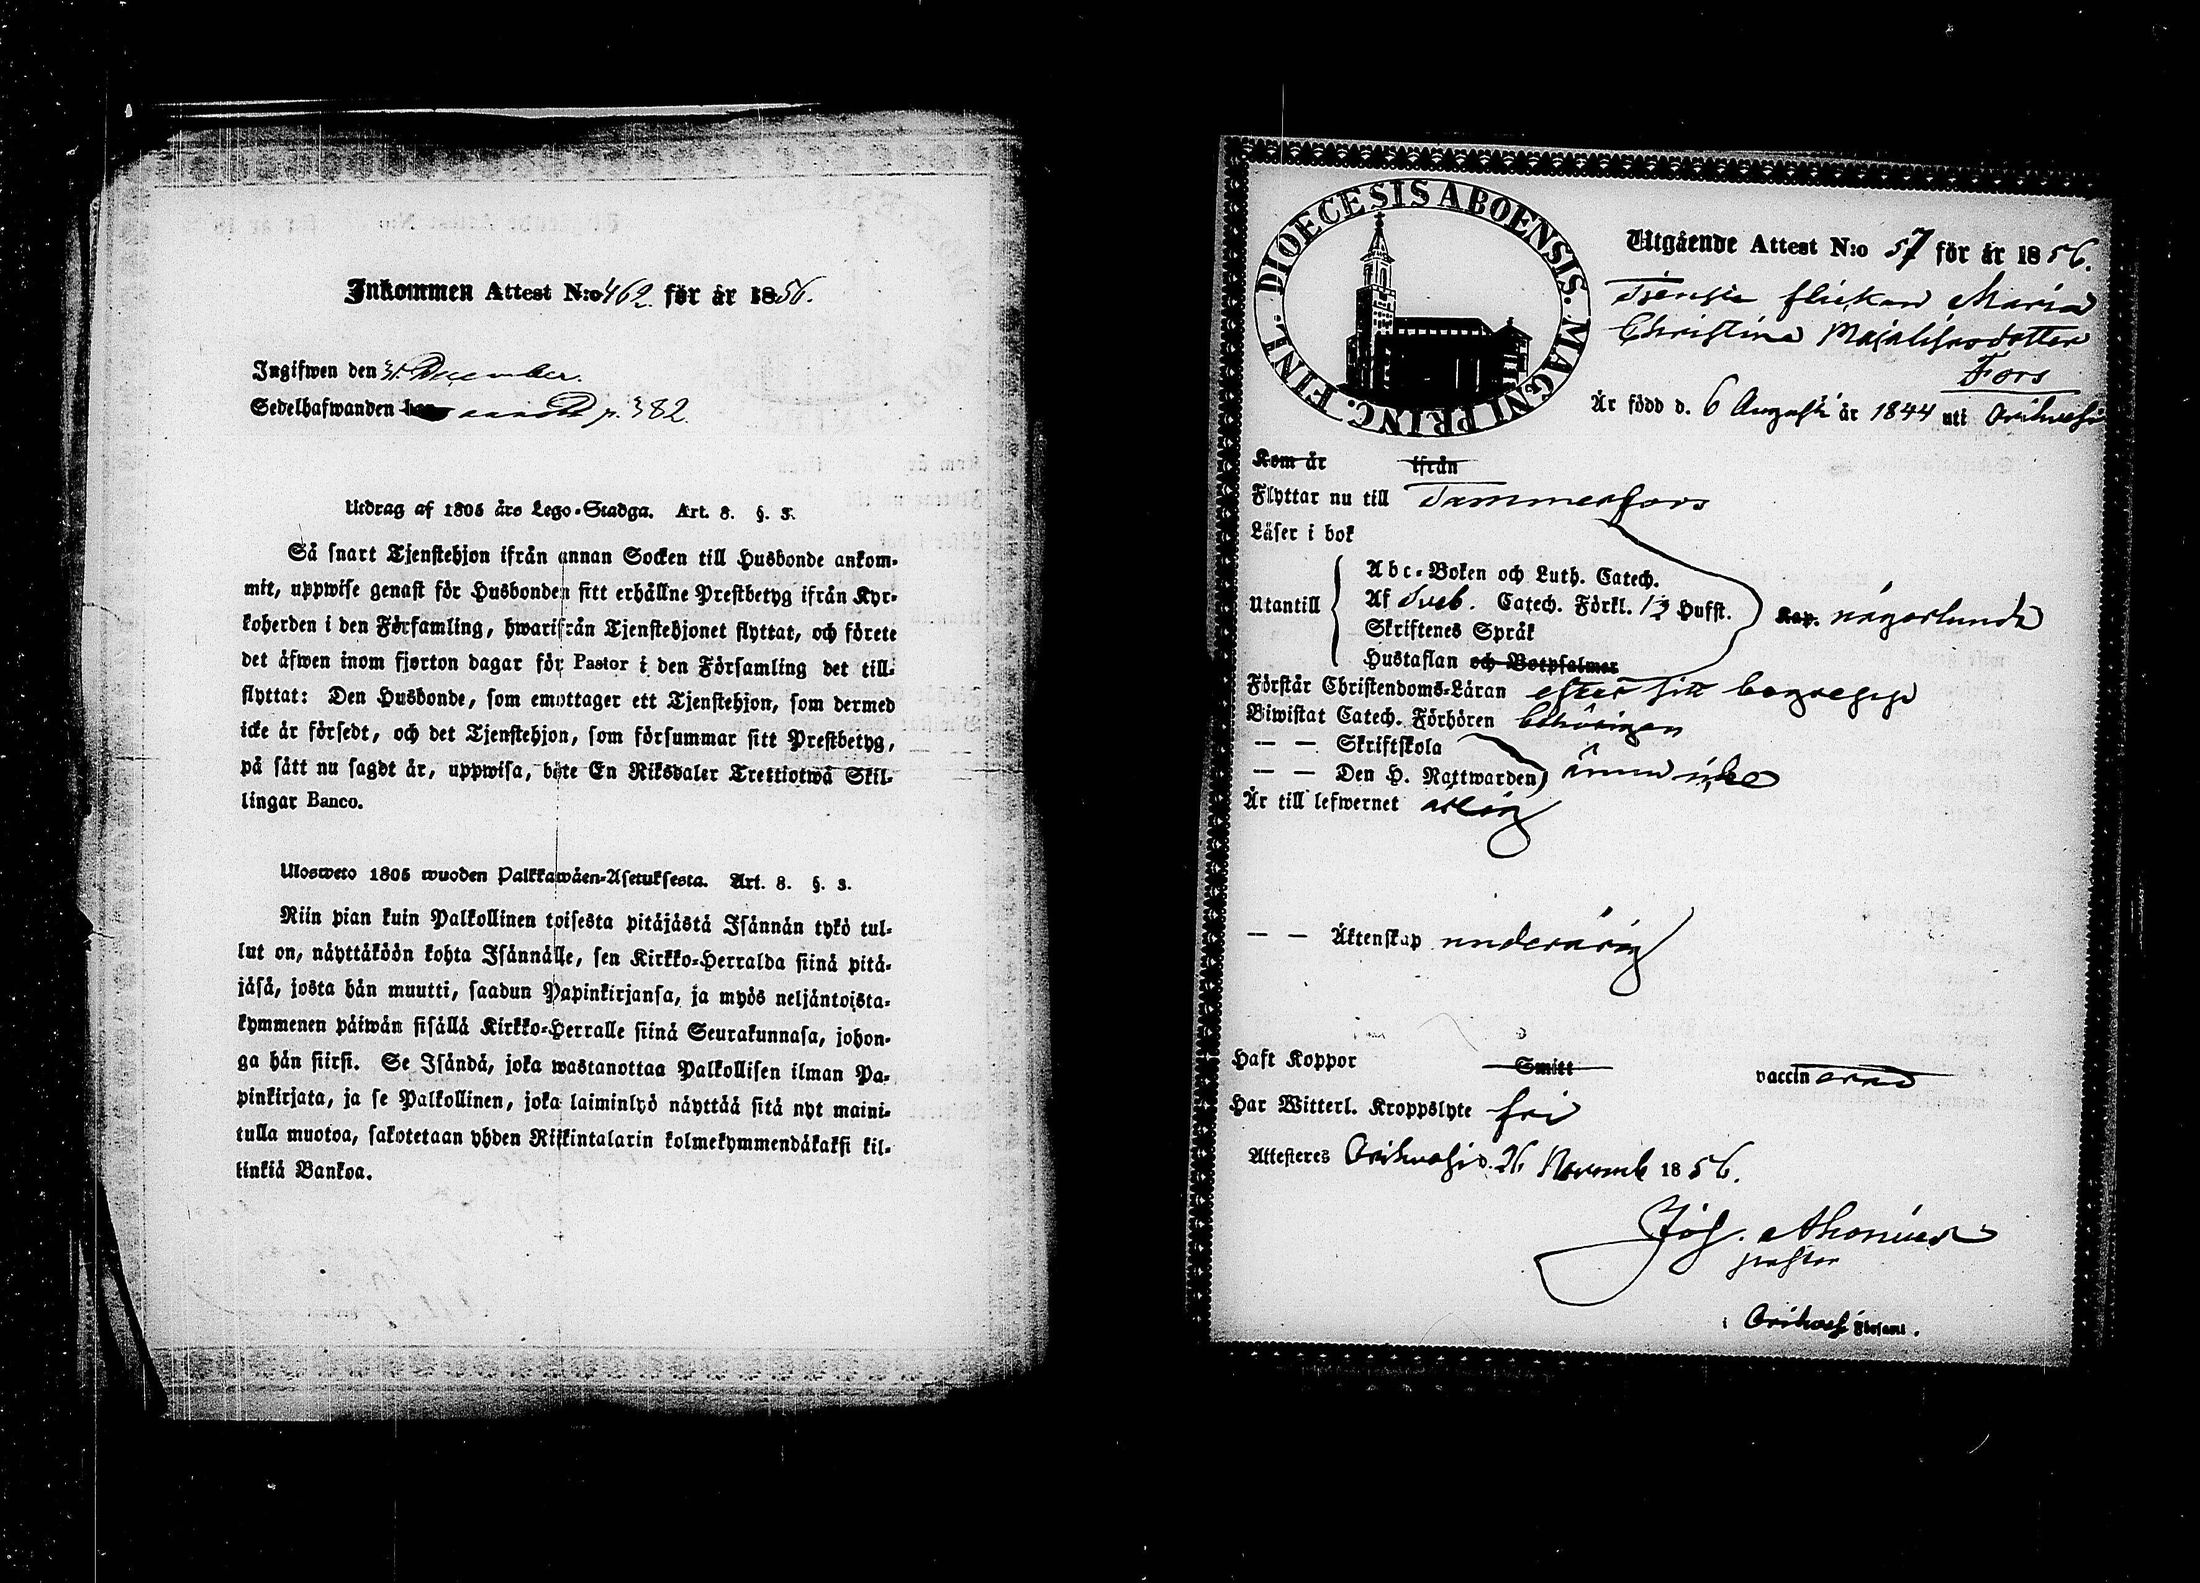 Inkommen Attest N:o 462 för år 1856.
Ingifwen den 31 December.
Sedelhafwanden p. 382.
Utdrag af 1805 års Lego-Stadga. Art. 8. §. 3.
Så snart Tjenstehjon ifrån annan Socken till Husbonde ankom-
mit, uppwise genast för Husbonden sitt erhållne Prestbetyg ifrån Kyr-
koherden i den Församling, hwarifrån Tjenstehjonet flyttat, och förete
det äfwen inom fjorton dagar för Pastor i den Församling det till-
flyttat: Den Husbonde, som emottager ett Tjenstehjon, som dermed
icke är försedt, och det Tjenstehjon, som försummar sitt Prestbetyg,
på sätt nu sagdt är, uppwisa, böte En Riksdaler Trettiotwå Skil-
lingar Banco.
Ulosweto 1805 wuoden Palkkawäen-Asetuksesta. Art. 8. §. 3.
Niin pian kuin Palkollinen toisesta pitäjästä Isännän tykö tul-
lut on, näyttäköön kohta Isännälle, sen Kirkko-Herralda siinä pitä-
jäsä, josta hän muutti, saadun Papinkirjansa, ja myös neljäntoista-
kymmenen päiwän sisällä Kirkko-Herralle siinä Seurakunnasa, johon-
ga hän siirsi. Se Isändä, joka wastanottaa Palkollisen ilman Pa-
pinkirjata, ja se Palkollinen, joka laiminlyö näyttää sitä nyt maini-
tulla muotoa, sakotetaan yhden Riikintalarin kolmekymmendäkaksi kil-
linkiä Bankoa.
DIOECESIS ABOENSIS. MAGNI PRINC. FINL.
Utgående Attest N:o 57 för år 1856.
Tjenste flickan Maria
Christina Majalisasdotter
Fors
Är född d. 6 Augusti år 1844 uti Orihvesi
Kom år ifrån
Flyttar nu till Tammerfors
Läser i bok
Utantill
Abc-Boken och Luth. Catech.
Af Sveb. Catech. Förkl. 13 Hufst. Kap. någorlunda
Skriftenes Språk
Hustaflan och Botpsalmer
Förstår Christendoms-Läran efter sitt begrepp
Biwistat Catech. Förhören behörigen
— — Skriftskola
— — Den H. Nattwarden ännu icke
Är till lefwernet
— — Äktenskap underårig
Haft Koppor Smitt vaccinerad
Har Witterl. Kroppslyte fri
Attesteres Orihvesi d. 26 Novemb 1856.
Joh. Ahonius
pastor
i Orihvesi Församl.